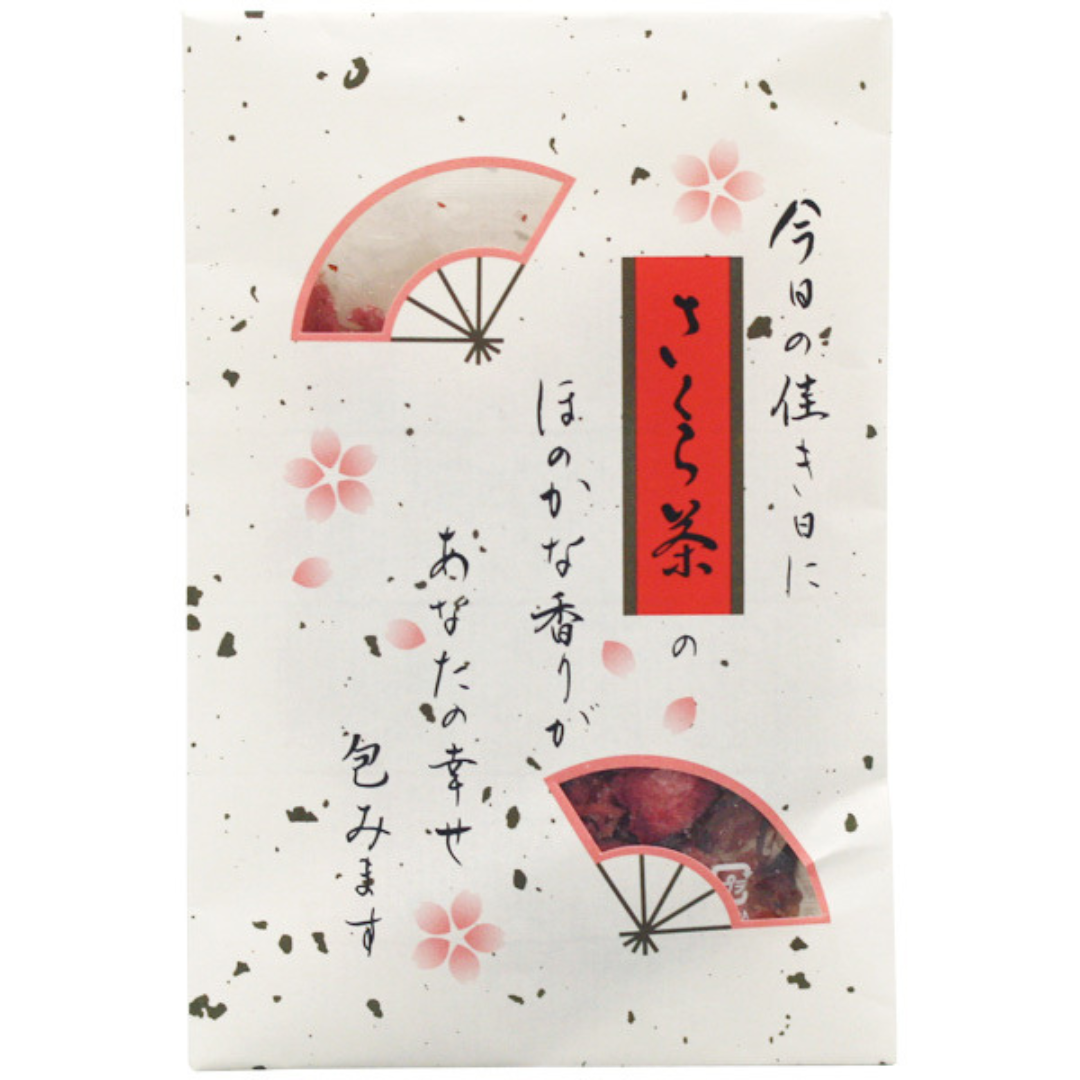 今日の佳き日に
さくら茶の
ほのかな香りが
あなたの幸せ
包みます
プラ